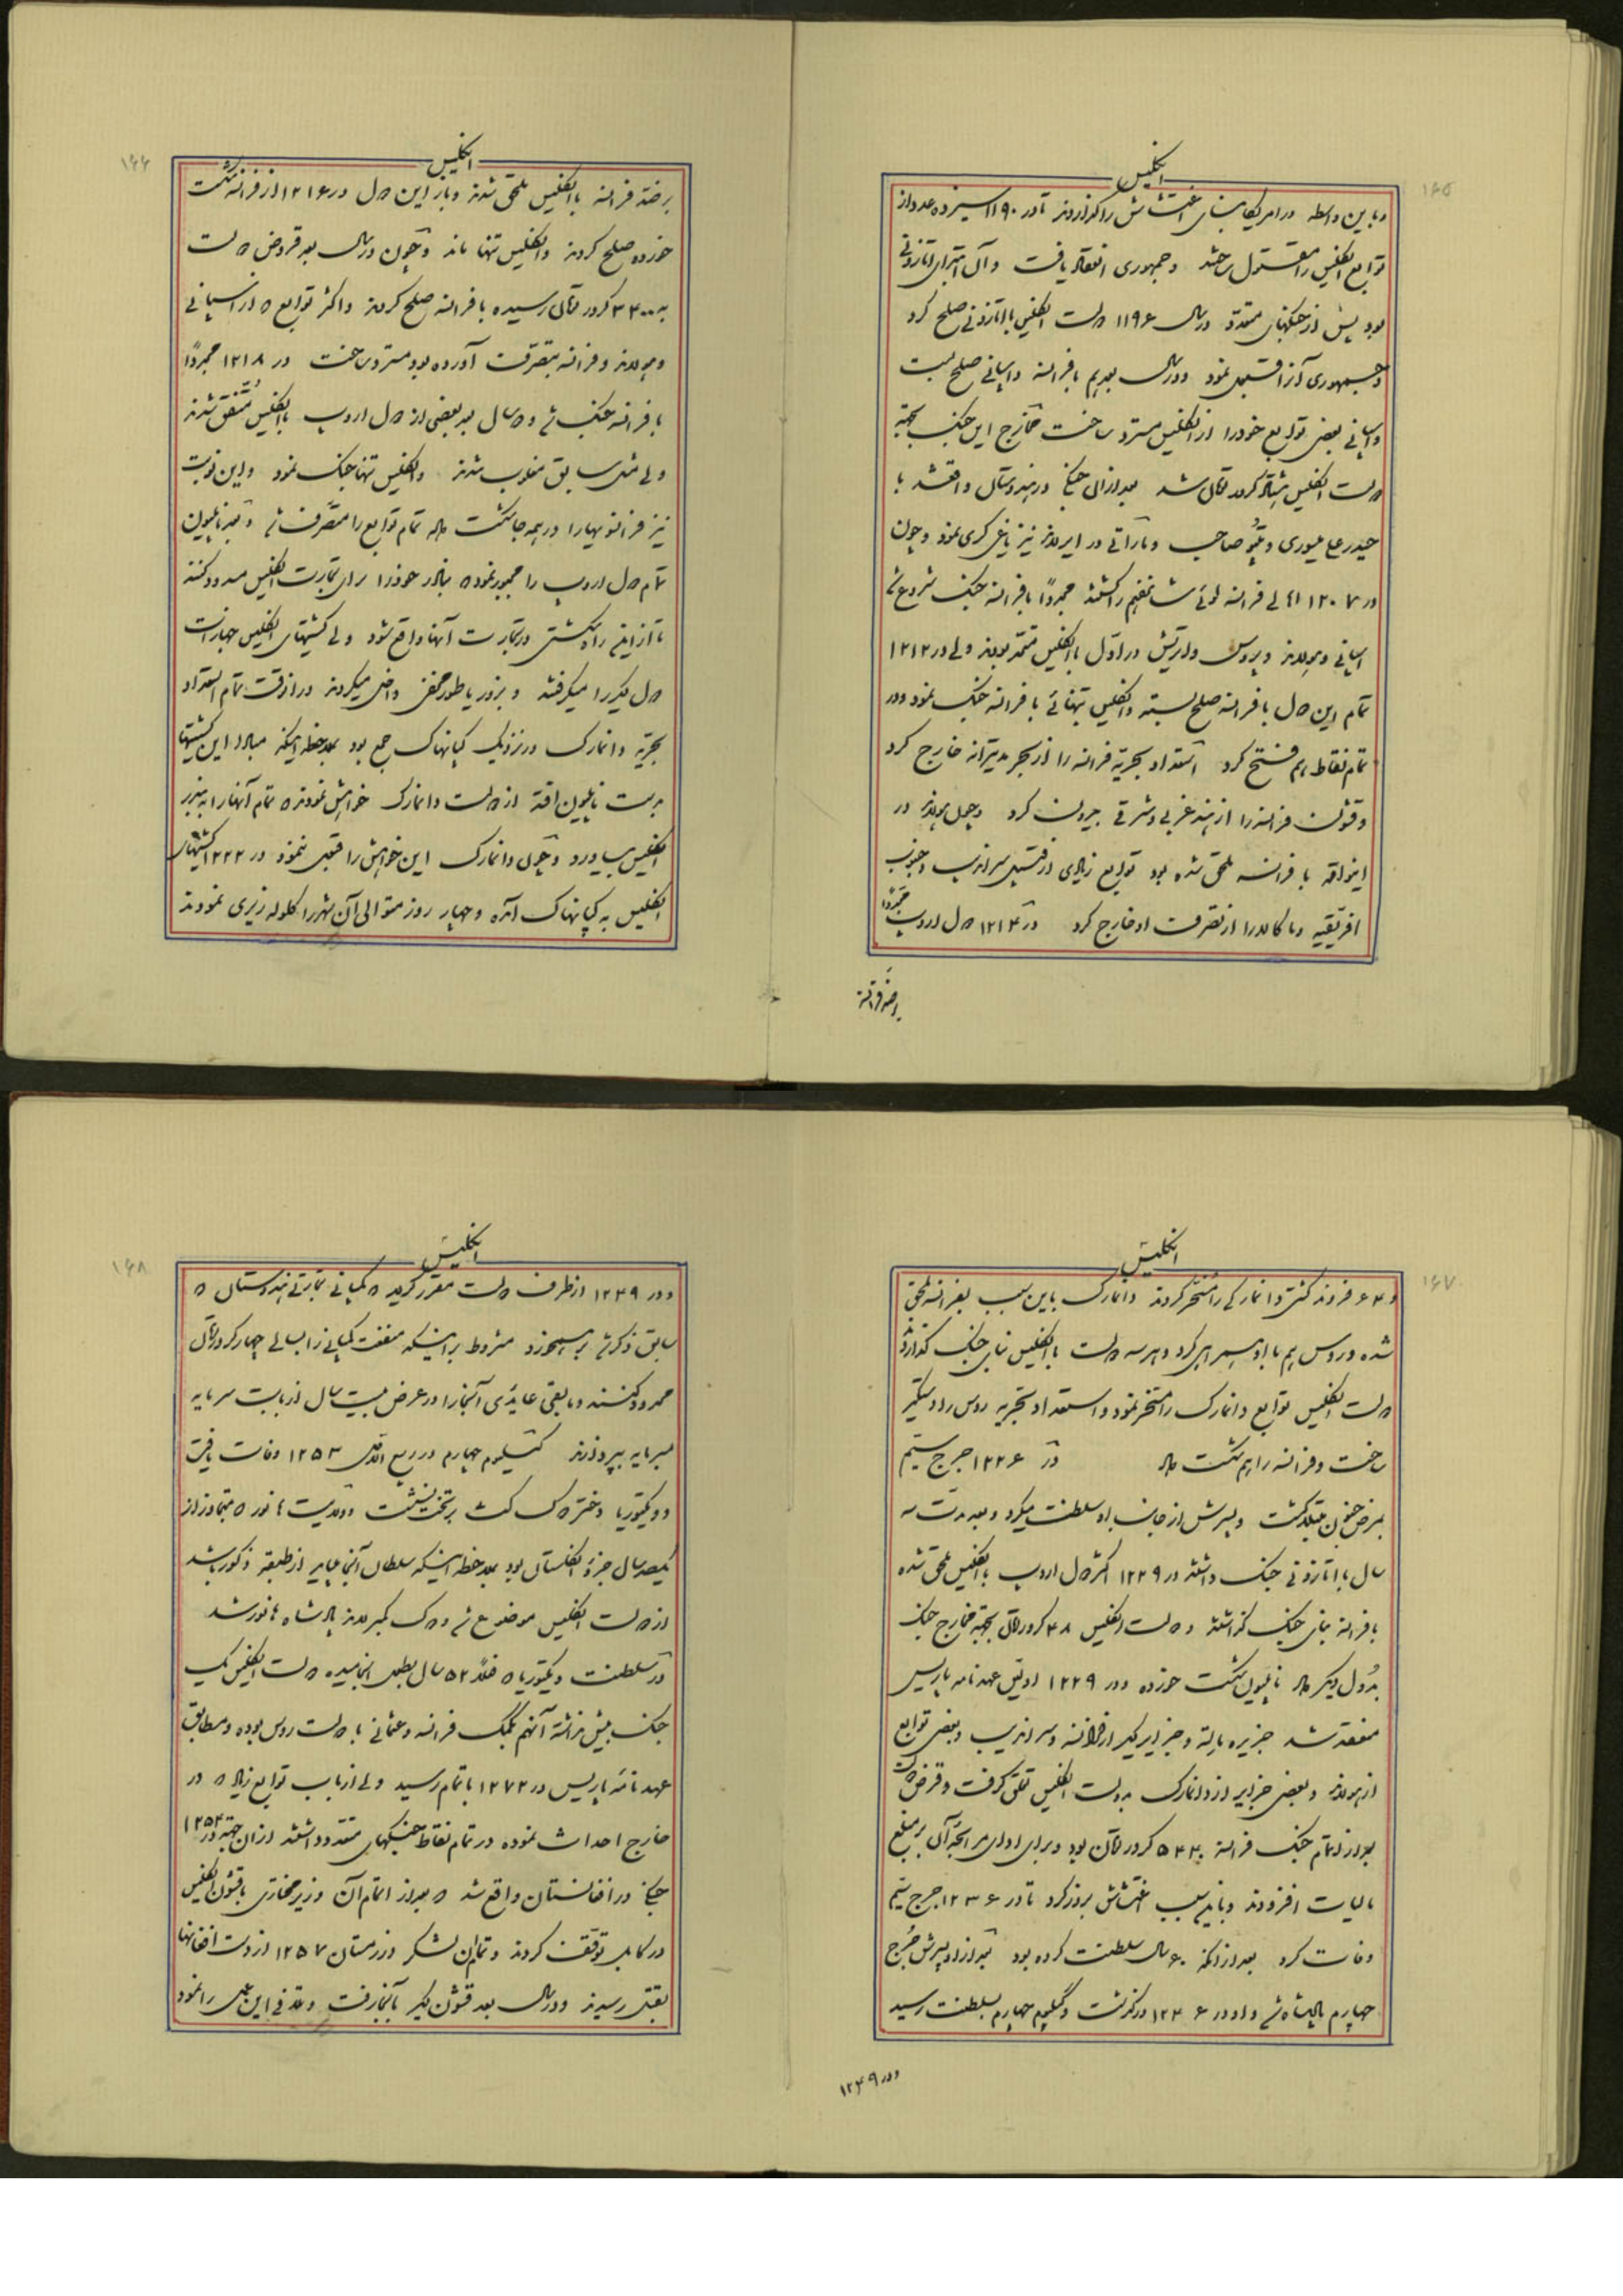 ۱۶۵
انگلیس
و باین واسطه در امریکا بنای اغتشاش را گذاردند تا در ۱۱۹۰ سیزده عدد از
توابع انگلیس را مقتول ساختند و جمهوری انعقاد یافت و آن ابتدای اتازونی
بود پس از جنگهای متعدد در سال ۱۱۹۶ دولت انگلیس با اتازونی صلح کرد
و جمهوری آنرا قبول نمود و در سال بعد هم با فرانسه و اسپانی صلح بست
و اسپانی بعضی توابع خود را از انگلیس مسترد ساخت مخارج این جنگ بجهة
دولت انگلیس کرور تومان شد بعد از آن جنگی در هندوستان واقع شد با
حیدر علی میسوری و تیپو صاحب و ماراتی در ایرلاند نیز یاغی گری نمود و چون
در ۱۲۰۷ اهالی فرانسه لوئی شانزدهم را کشتند مجدداً با فرانسه جنگ شروع شد
اسپانی و هولاند و پروس و اوتریش در اول با انگلیس متحد بودند ولی در ۱۲۱۲
تمام این دول با فرانسه صلح بسته و انگلیس بتنهائی با فرانسه جنگ نمود و در
تمام نقاط هم فتح کرد استعداد بحریه فرانسه را از بحر مدیترانه خارج کرد
و قشون فرانسه را از هند غربی و شرقی بیرون کرد و چون هولاند در
اینواقعه با فرانسه ملحق شده بود توابع زیادی از قبیل سراندیب و جنوب
افریقیه و ملاکا و را از تصرف او خارج کرد در ۱۲۱۴ دول اروپ مجدداً
بر ضد فرانسه
۱۶۶
انگلیس
بر ضد فرانسه با انگلیس ملحق شدند و باز این دول در ۱۲۱۶ از فرانسه شکست
خورده صلح کردند و انگلیس تنها ماند و چون در سال بعد قروض دولت
به ۳۴۰۰ کرور تومان رسیده با فرانسه صلح کردند و اکثر توابع که از اسپانی
و هولاند و فرانسه بتصرف آورده بود مسترد ساخت در ۱۲۱۸ مجدداً
با فرانسه جنگ شد و دو سال بعد بعضی از دول اروپ با انگلیس متفق شدند
ولی مثل سابق مغلوب شدند و انگلیس تنها جنگ نمود و این نوبت
نیز فرانسویها را در همه جا شکست داده تمام توابع را متصرف شد و بعد ناپلیون
تمام دول اروپ را مجبور نمود که بنادر خود را برای تجارت انگلیس مسدود کنند
تا از این راه شکستی در تجارت آنها واقع شود ولی کشتیهای انگلیس جهازات
دول دیگر را میگرفتند و بزور یا بطور مخفی داخل میکردند در انوقت تمام استعداد
بحریه دانمارک در نزدیک کپانهاک جمع بود بملاحظه اینکه مبادا این کشتیها
بدست ناپلیون افتد از دولت دانمارک خواهش نمودند که تمام آنها را به بندر
انگلیس بیاورد و چون دانمارک این خواهش را قبول ننمود در ۱۲۲۲ کشتیهای
انگلیس به کپانهاک آمده و چهار روز متوالی آن شهر را گلوله ریزی نمودند
۱۶۷
انگلیس
و ۶۴ فروند کشتی دانمارکی را مسخر کردند دانمارک باین سبب بفرانسه ملحق
شده و روس هم با او همراهی کرد و هر سه دولت با انگلیس بنای جنگ گذاردند
دولت انگلیس توابع دانمارک را مسخر نمود و استعداد بحریه روس را دستگیر
ساخت و فرانسه را هم شکست داد در ۱۲۲۶ جرج سیم
بمرض جنون مبتلا گشت و پسرش از جانب او سلطنت میکرد و بعد مدت سه
سال با اتازونی جنگ داشتند در ۱۲۲۹ اکثر دول اروپ با انگلیس ملحق شده
با فرانسه بنای جنگ گذاشتند و دولت انگلیس ۴۸ کرور تومان بجهة مخارج جنگ
بدول دیگر داد ناپلیون شکست خورده و در ۱۲۲۹ اولین عهدنامه پاریس
منعقد شد جزیره مالته و جزایر دیگر از فرانسه و سراندیب و بعضی توابع
از هولاند و بعضی جزایر از دانمارک بدولت انگلیس تعلق گرفت و قرض دولت
بعد از اتمام جنگ فرانسه ۵۴۴۰ کرور تومان بود و برای ادای مرابحه آن بر مبلغ
مالیات افزودند و باین سبب اغتشاش بروز کرد تا در ۱۲۳۶ جرج سیم
وفات کرد بعد از آنکه ۶۰ سال سلطنت کرده بود بعد از او پسرش جرج
چهارم پادشاه شد و او در ۱۲۴۶ درگذشت و گیلیوم چهارم بسلطنت رسید
و در ۱۲۴۹
۱۶۸
انگلیس
و در ۱۲۴۹ از طرف دولت مقرر گردید که کمپانی تجارتی هندوستان که
سابق ذکر شد بر هم بخورد مشروط بر اینکه منفعت کمپانی را بسالی چهار کرور تومان
محدود کنند و مابقی عایدی آنجا را در عرض بیست سال از بابت سرمایه
سرمایه بپردازند گیلیوم چهارم در ربیع الاول ۱۲۵۳ وفات یافت
و ویکتوریا دختر دوک کنت بر تخت نشست و ولایت هانور که متجاوز از
یکصد سال جزو انگلستان بود بملاحظه اینکه سلطان آنجا باید از طبقه ذکور باشد
از دولت انگلیس موضوع شد و دوک کمبرلاند پادشاه هانور شد
در سلطنت ویکتوریا که فعلاً ۵۲ سال بطول انجامیده دولت انگلیس یک
جنگ بیش نداشته آنهم بکمک فرانسه و عثمانی با دولت روس بوده و مطابق
عهدنامه پاریس در ۱۲۷۲ باتمام رسید ولی از باب توابع زیاد که در
خارج احداث نموده در تمام نقاط جنگهای متعدد داشتند از آن جمله در ۱۲۵۴
جنگی در افغانستان واقع شد که بعد از اتمام آن وزیر مختاری با قشون انگلیس
در کابل توقف کردند و تمام آن لشکر در زمستان ۱۲۵۷ از دست افغانها
بقتل رسیدند و در سال بعد قشون دیگر بآنجا رفت و تلافی این عمل را نمود